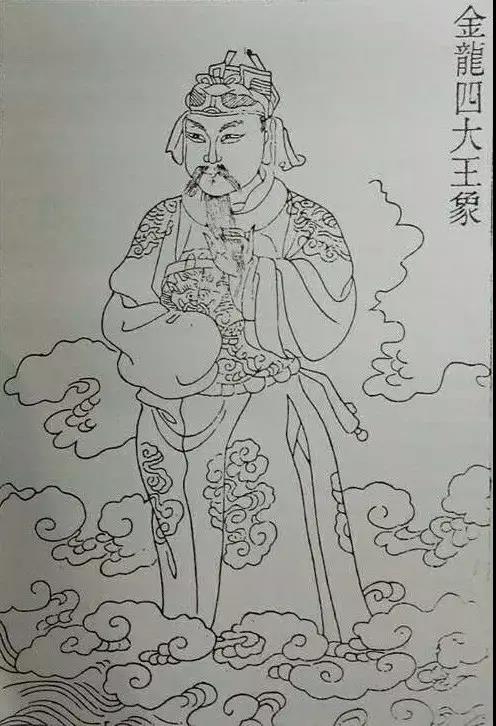 金龍四大王象